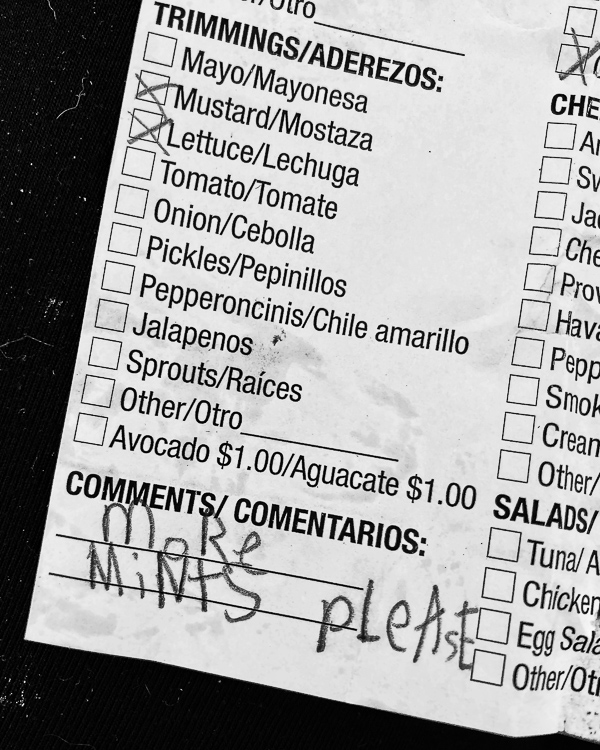 /Otro
TRIMMINGS/ADEREZOS:
Mayo/Mayonesa
Mustard/Mostaza
Lettuce/Lechuga
Tomato/Tomate
Onion/Cebolla
Pickles/Pepinillos
Pepperoncinis/Chile amarillo
Jalapenos
Sprouts/Raíces
Other/Otro
Avocado $1.00/Aguacate $1.00
COMMENTS/ COMENTARIOS:
MoRe
MiNTS pleAse
CHE
Ar
Sv
Jac
Che
Prov
Hava
Pepp
Smok
Cream
Other/
SALADS/
Tuna/ A
Chicken
Egg Sala
Other/Otr